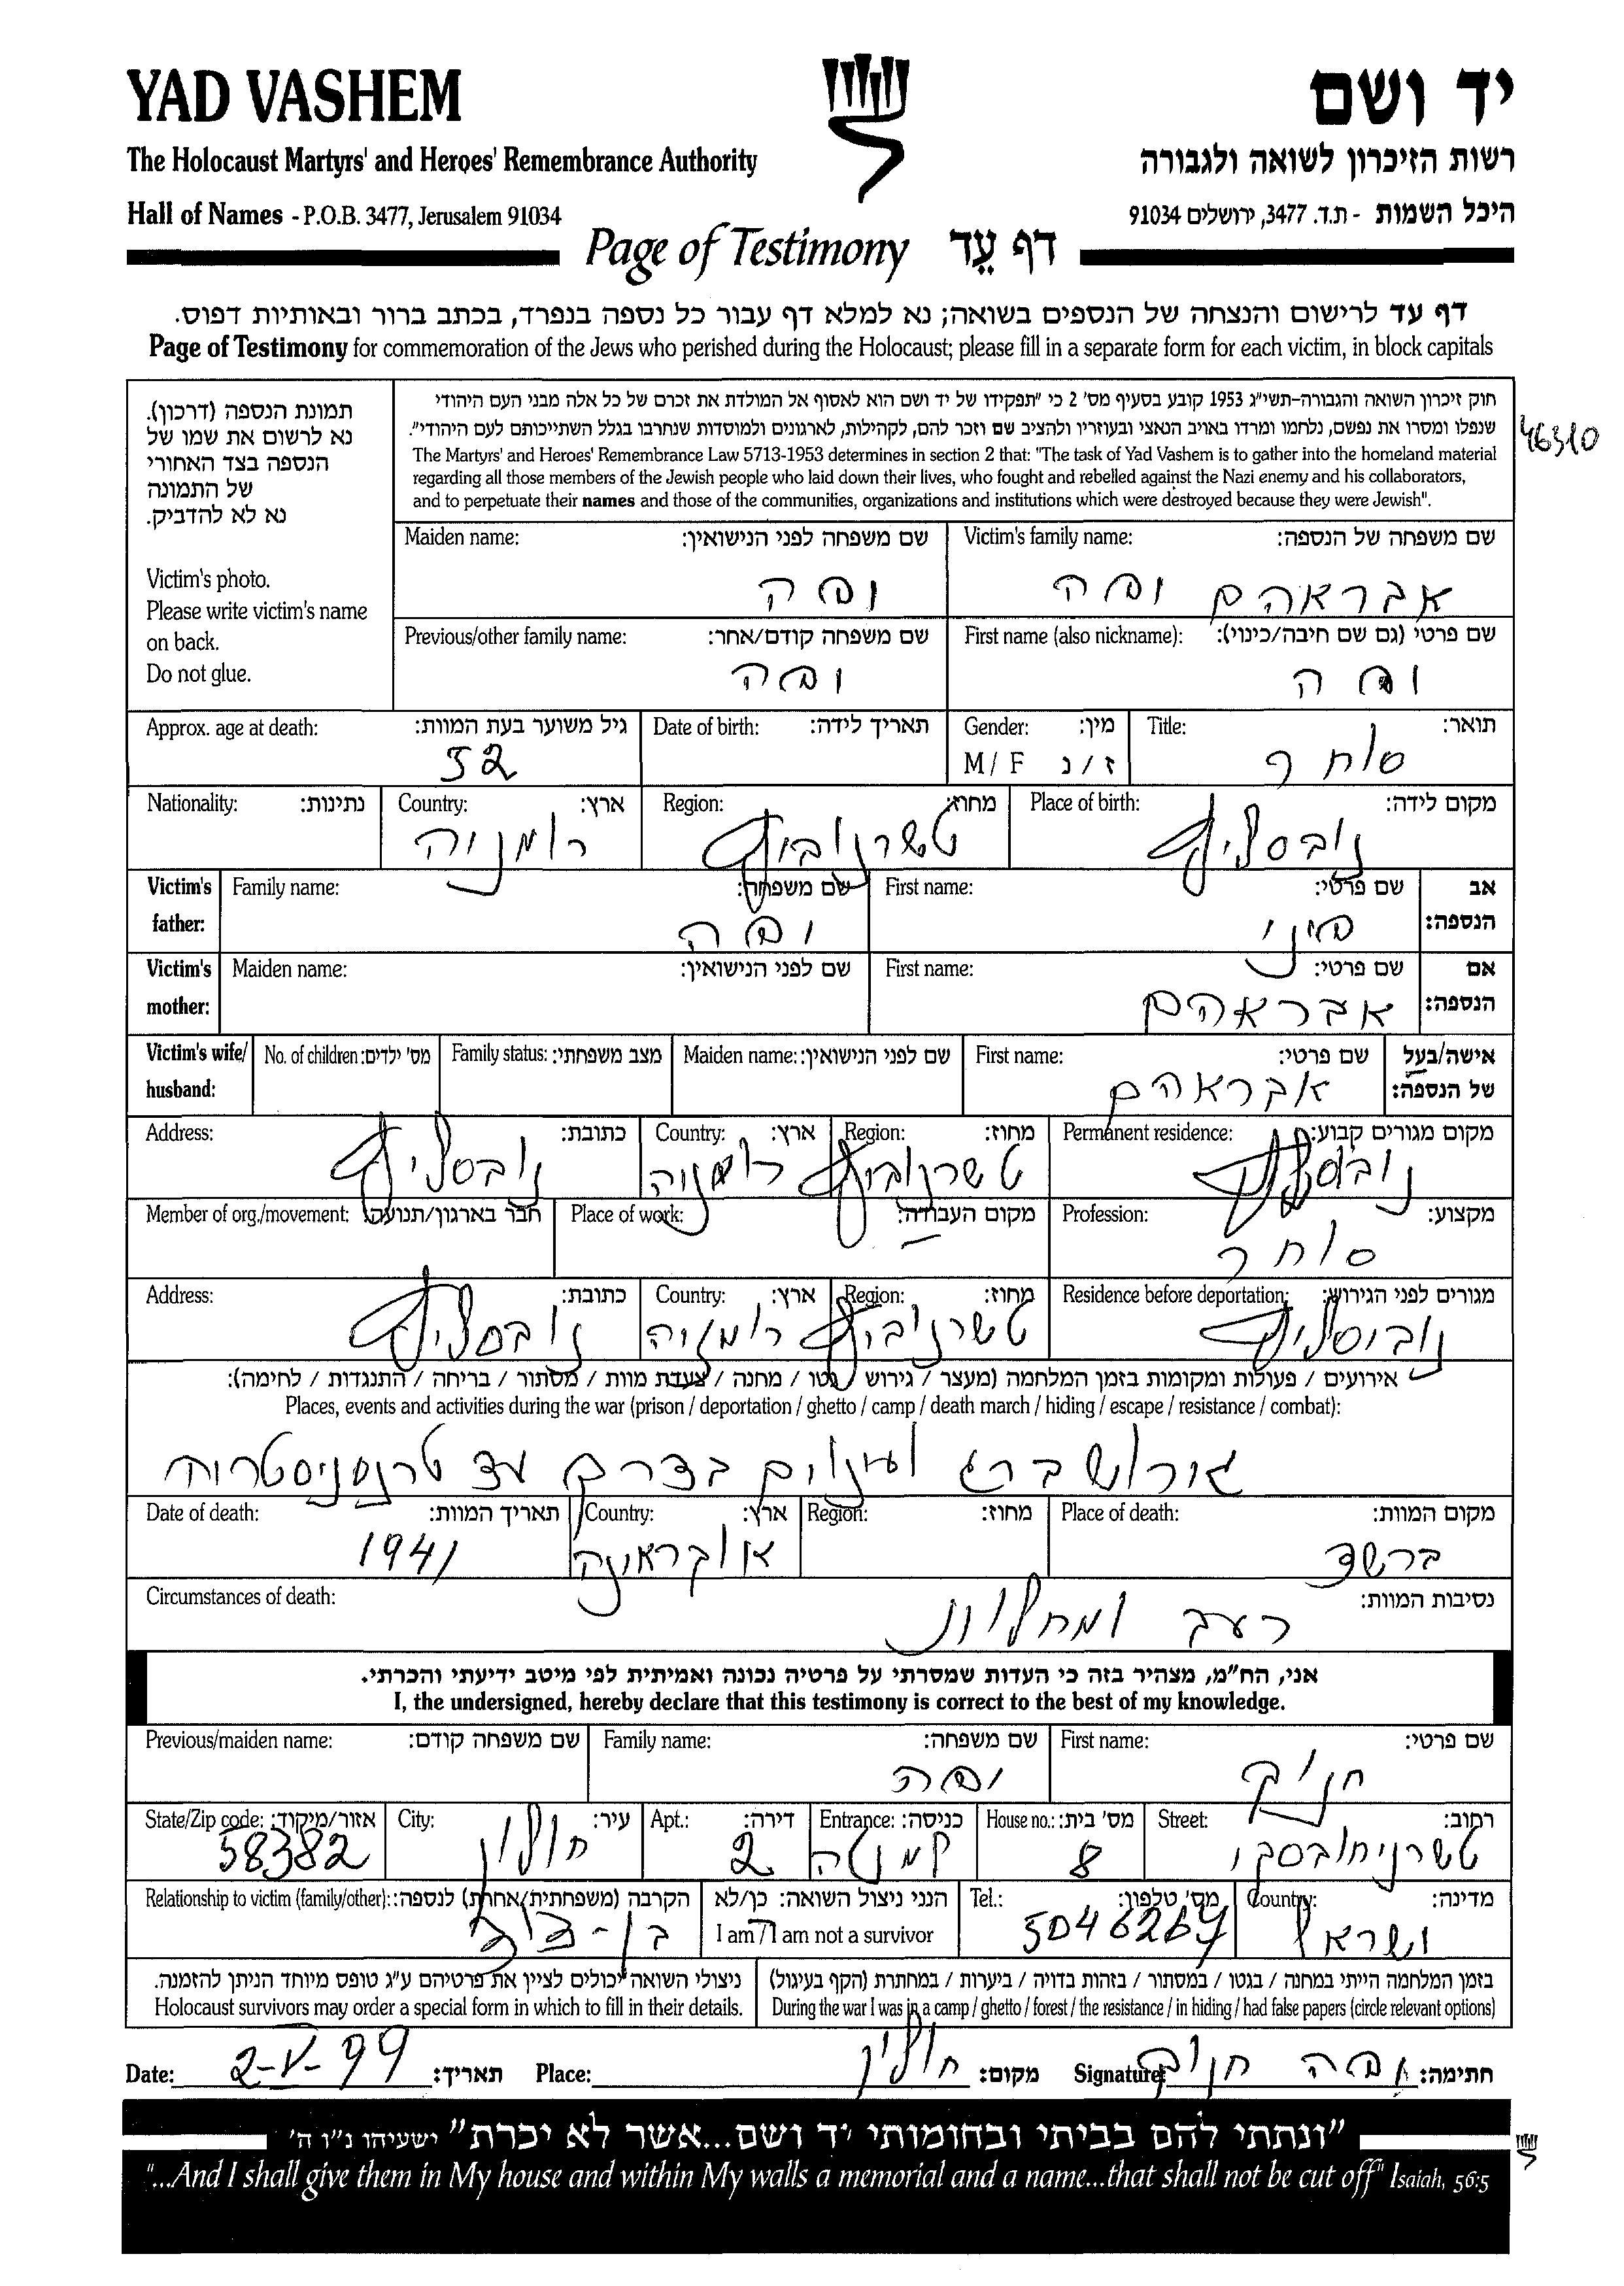 YAD VASHEM
יד ושם
The Holocaust Martyrs' and Heroes' Remembrance Authority
רשות הזיכרון לשואה ולגבורה
Hall of Names - P.O.B. 3477, Jerusalem 91034
היכל השמות - ת.ד. 3477, ירושלים 91034
Page of Testimony דף עֵד
דף עד לרישום והנצחה של הנספים בשואה; נא למלא דף עבור כל נספה בנפרד, בכתב ברור ובאותיות דפוס.
Page of Testimony for commemoration of the Jews who perished during the Holocaust; please fill in a separate form for each victim, in block capitals
תמונת הנספה (דרכון).
נא לרשום את שמו של
הנספה בצד האחורי
של התמונה
נא לא להדביק.
Victim's photo.
Please write victim's name
on back.
Do not glue.
חוק זיכרון השואה והגבורה-תשי"ג 1953 קובע בסעיף מס' 2 כי "תפקידו של יד ושם הוא לאסוף אל המולדת את זכרם של כל אלה מבני העם היהודי
שנפלו ומסרו את נפשם, נלחמו ומרדו באויב הנאצי ובעוזריו ולהציב שם וזכר להם, לקהילות, לארגונים ולמוסדות שנחרבו בגלל השתייכותם לעם היהודי".
The Martyrs' and Heroes' Remembrance Law 5713-1953 determines in section 2 that: "The task of Yad Vashem is to gather into the homeland material
regarding all those members of the Jewish people who laid down their lives, who fought and rebelled against the Nazi enemy and his collaborators,
and to perpetuate their names and those of the communities, organizations and institutions which were destroyed because they were Jewish".
46310
Victim's family name: שם משפחה של הנספה:
אברהם
Maiden name: שם משפחה לפני הנישואין:
First name (also nickname): שם פרטי (גם שם חיבה/כינוי):
Previous/other family name: שם משפחה קודם/אחר:
Title: תואר:
סוחר
Gender: מין:
M / F ז / נ
Date of birth: תאריך לידה:
Approx. age at death: גיל משוער בעת המוות:
52
Place of birth: מקום לידה:
נובסליץ
Region: מחוז:
טשרנוביץ
Country: ארץ:
רומניה
Nationality: נתינות:
Victim's father: אב הנספה:
First name: שם פרטי:
פיני
Family name: שם משפחה:
Victim's mother: אם הנספה:
First name: שם פרטי:
אברהם
Maiden name: שם לפני הנישואין:
Victim's wife/ husband: אישה/בעל של הנספה:
First name: שם פרטי:
אברהם
Maiden name: שם לפני הנישואין:
Family status: מצב משפחתי:
No. of children: מס' ילדים:
Permanent residence: מקום מגורים קבוע:
נובסליץ
Region: מחוז:
טשרנוביץ
Country: ארץ:
רומניה
Address: כתובת:
נובסליץ
Profession: מקצוע:
סוחר
Place of work: מקום העבודה:
Member of org./movement: חבר בארגון/תנועה:
Residence before deportation: מגורים לפני הגירוש:
נובוסליץ
Region: מחוז:
טשרנוביץ
Country: ארץ:
רומניה
Address: כתובת:
נובסליץ
אירועים / פעולות ומקומות בזמן המלחמה (מעצר / גירוש / גטו / מחנה / צעדת מוות / מסתור / בריחה / התנגדות / לחימה):
Places, events and activities during the war (prison / deportation / ghetto / camp / death march / hiding / escape / resistance / combat):
גורוש ברג ועינוים בדרך עד טרנסניסטריה
Place of death: מקום המוות:
ברשד
Region: מחוז:
Country: ארץ:
אוקראינה
Date of death: תאריך המוות:
1941
Circumstances of death: נסיבות המוות:
רעב ומחלות
אני, הח"מ, מצהיר בזה כי העדות שמסרתי על פרטיה נכונה ואמיתית לפי מיטב ידיעתי והכרתי.
I, the undersigned, hereby declare that this testimony is correct to the best of my knowledge.
First name: שם פרטי:
חנוך
Family name: שם משפחה:
Previous/maiden name: שם משפחה קודם:
Street: רחוב:
טשרניחובסקי
House no.: מס' בית:
8
Entrance: כניסה:
Apt.: דירה:
2
City: עיר:
חולון
State/Zip code: אזור/מיקוד:
58382
Country: מדינה:
ישראל
Tel.: מס' טלפון:
5046267
הנני ניצול השואה: כן/לא
I am / I am not a survivor
Relationship to victim (family/other): הקרבה (משפחתית/אחרת) לנספה:
בן-דוד
בזמן המלחמה הייתי במחנה / בגטו / במסתור / בזהות בדויה / ביערות / במחתרת (הקף בעיגול)
During the war I was in a camp / ghetto / forest / the resistance / in hiding / had false papers (circle relevant options)
ניצולי השואה יכולים לציין את פרטיהם ע"ג טופס מיוחד הניתן להזמנה.
Holocaust survivors may order a special form in which to fill in their details.
Date: 2-V-99 תאריך: Place: חולון מקום: Signature: חנוך חתימה:
"ונתתי להם בביתי ובחומותי יד ושם...אשר לא יכרת" ישעיהו נ"ו ה'
"...And I shall give them in My house and within My walls a memorial and a name...that shall not be cut off" Isaiah, 56:5